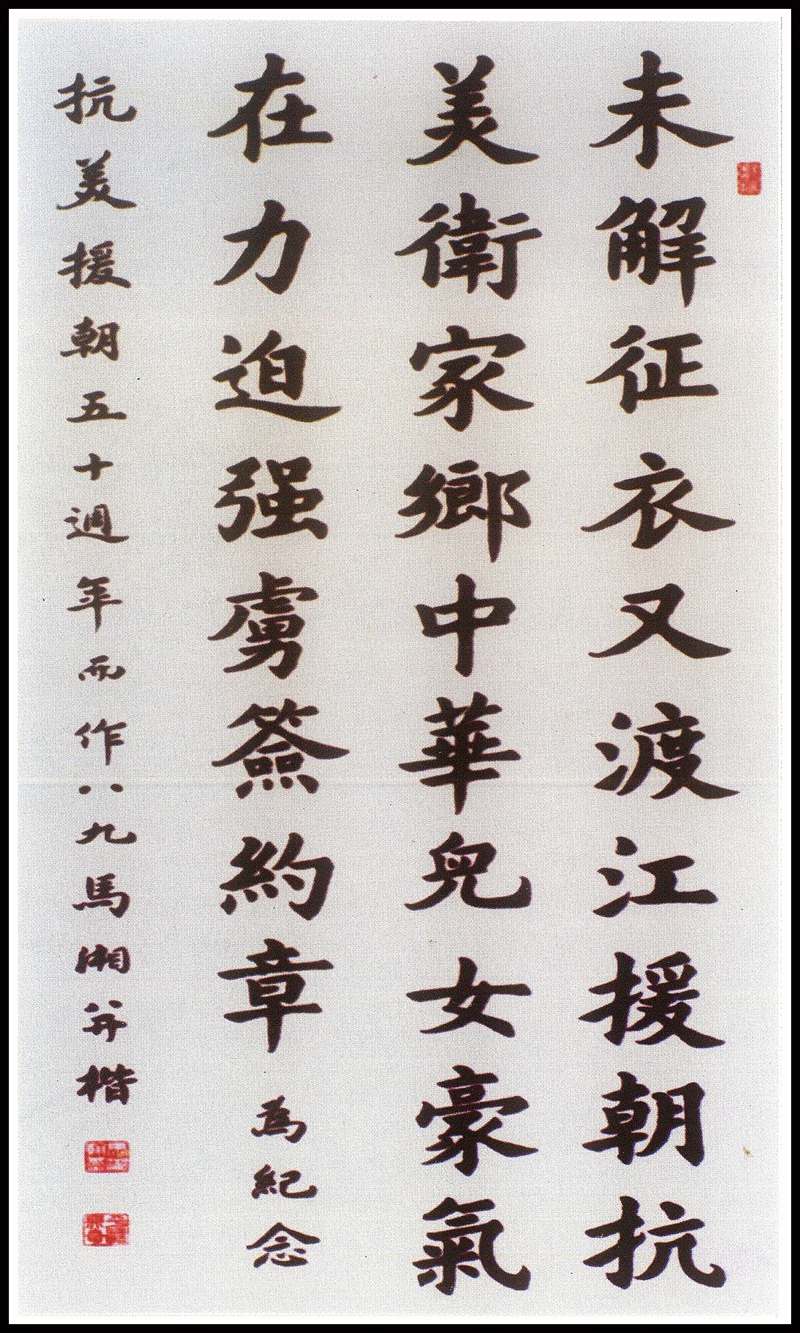 未解征衣又渡江援朝抗
美衛家鄉中華兒女豪氣
在力迫强虜簽約章為紀念
抗美援朝五十週年而作八九馬湘并楷